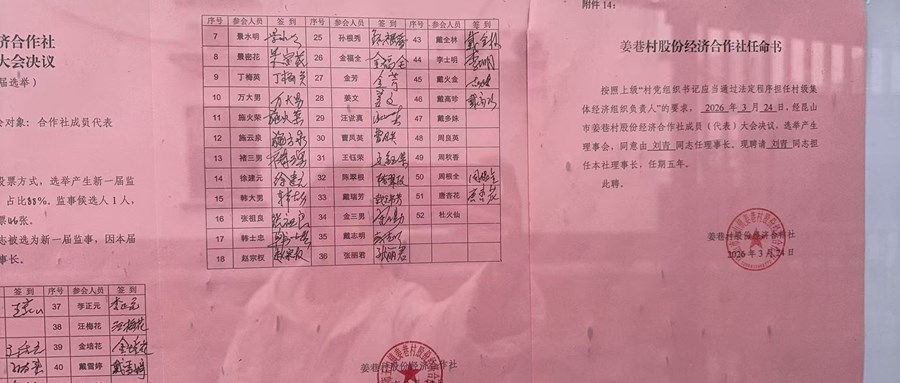 济合作社
大会决议
届选举)
会对象：合作社成员代表
投票方式，选举产生新一届监
占比88%。监事候选人1人，
票46张。
志被选为新一届监事，因本届
事长。
签 到 序号 参会人员 签 到
37 李正元 李正元
38 汪梅花 汪梅花
39 金培花 金培花
40 戴雪婷 戴雪婷
序号 参会人员 签 到 序号 参会人员 签 到 序号 参会人员 签 到
7 景水明 25 孙根秀 孙根秀 43 戴全林 戴全林
8 景密花 26 金福全 金福全 44 李士明
9 丁梅英 丁梅英 27 金芳 金芳 45 戴火金
10 万大男 万大男 28 姜文 姜文 46 戴高珍
11 施火荣 施火荣 29 汪业真 47 戴多妹
12 施云泉 施云泉 30 曹凤英 曹凤英 48 周良英
13 褚三男 31 王钰荣 王钰荣 49 周秋香
14 徐建元 徐建元 32 陈翠根 50 周根全 周根全
15 韩大男 33 戴瑞芳 51 唐杏花
16 张祖良 张祖良 34 金三男 52 杜火仙
17 韩士忠 35 戴志明
18 赵宗权 赵宗权 36 张丽君 张丽君
姜巷村股份经济合作社
附件 14：
姜巷村股份经济合作社任命书
按照上级“村党组织书记应当通过法定程序担任村级集
体经济组织负责人”的要求，2026 年 3 月 24 日，经昆山
市姜巷村股份经济合作社成员（代表）大会决议，选举产生
理事会，同意由 刘青 同志任理事长。现聘请 刘青 同志担
任本社理事长，任期五年。
此聘。
姜巷村股份经济合作社
2026 年 3 月 24 日